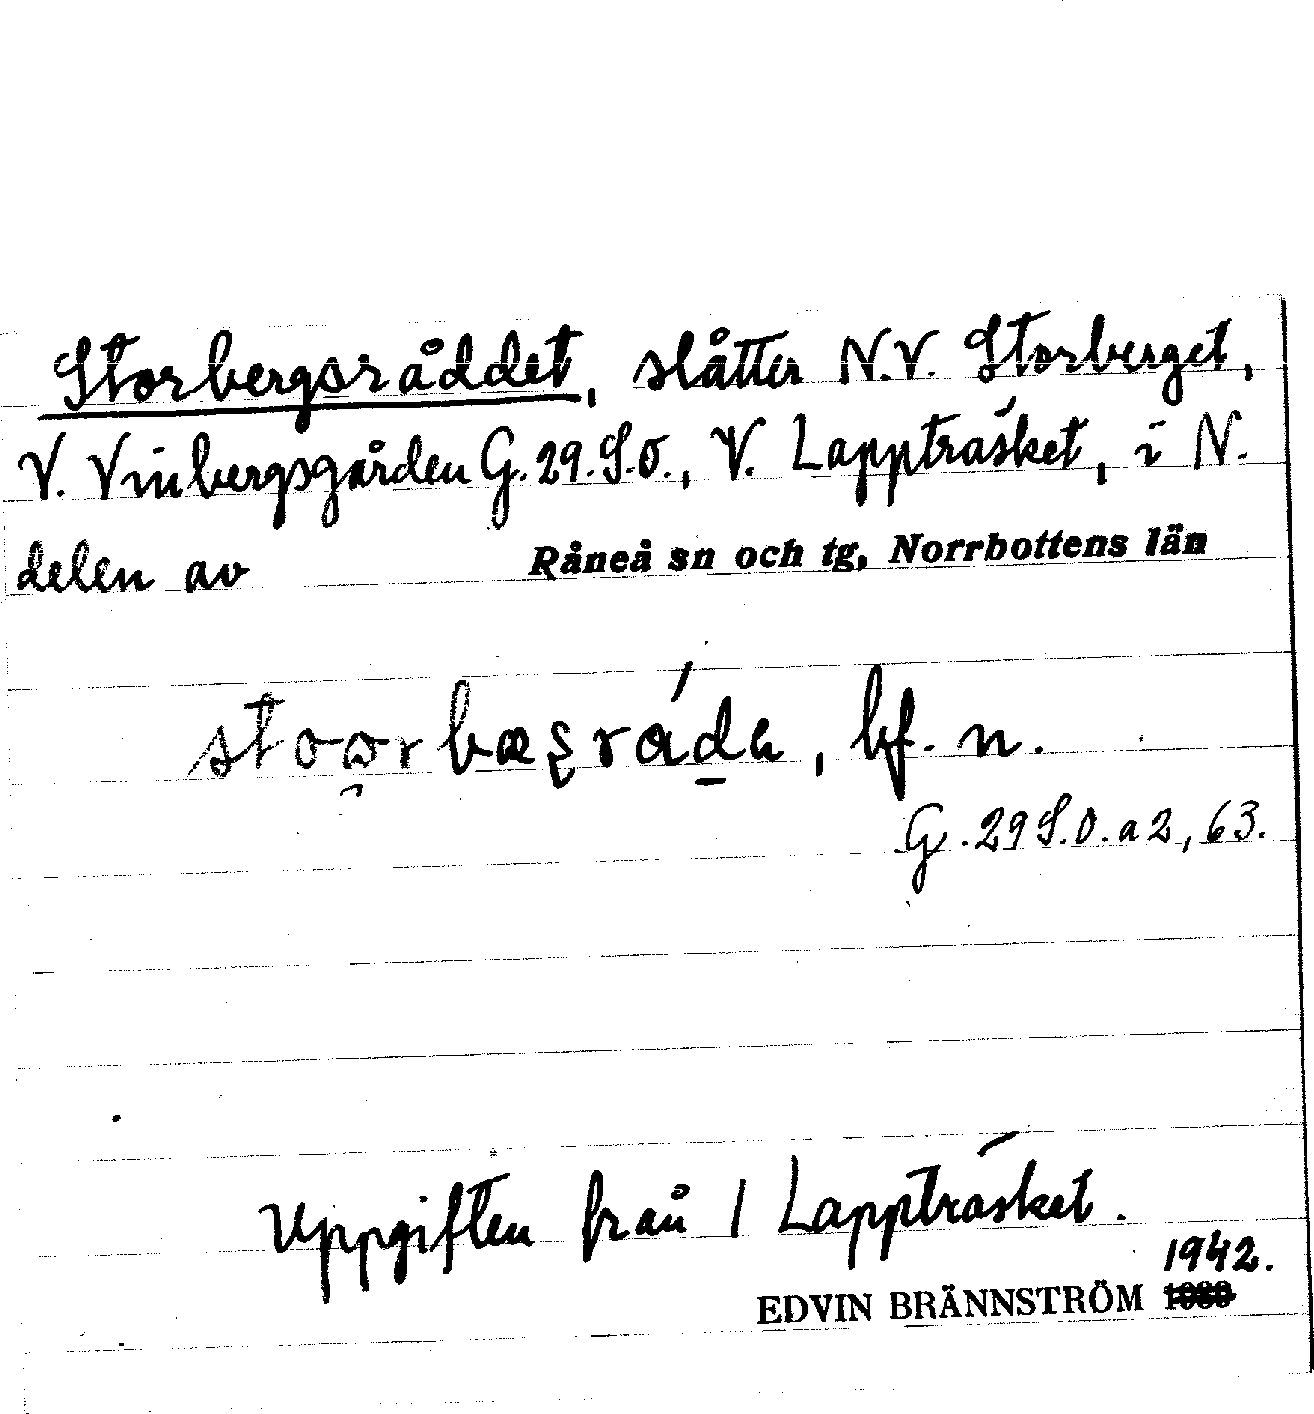 Storbergsråddet, slåtter N.V. Storberget,
V. Vinbergsgården G.29.S.O., V. Lappträsket, i N.
delen av Råneå sn och tg, Norrbottens län
bf. n.
G.29 S.O. a 2, 63.
Uppgiften från 1 Lappträsket.
1942.
EDVIN BRÄNNSTRÖM